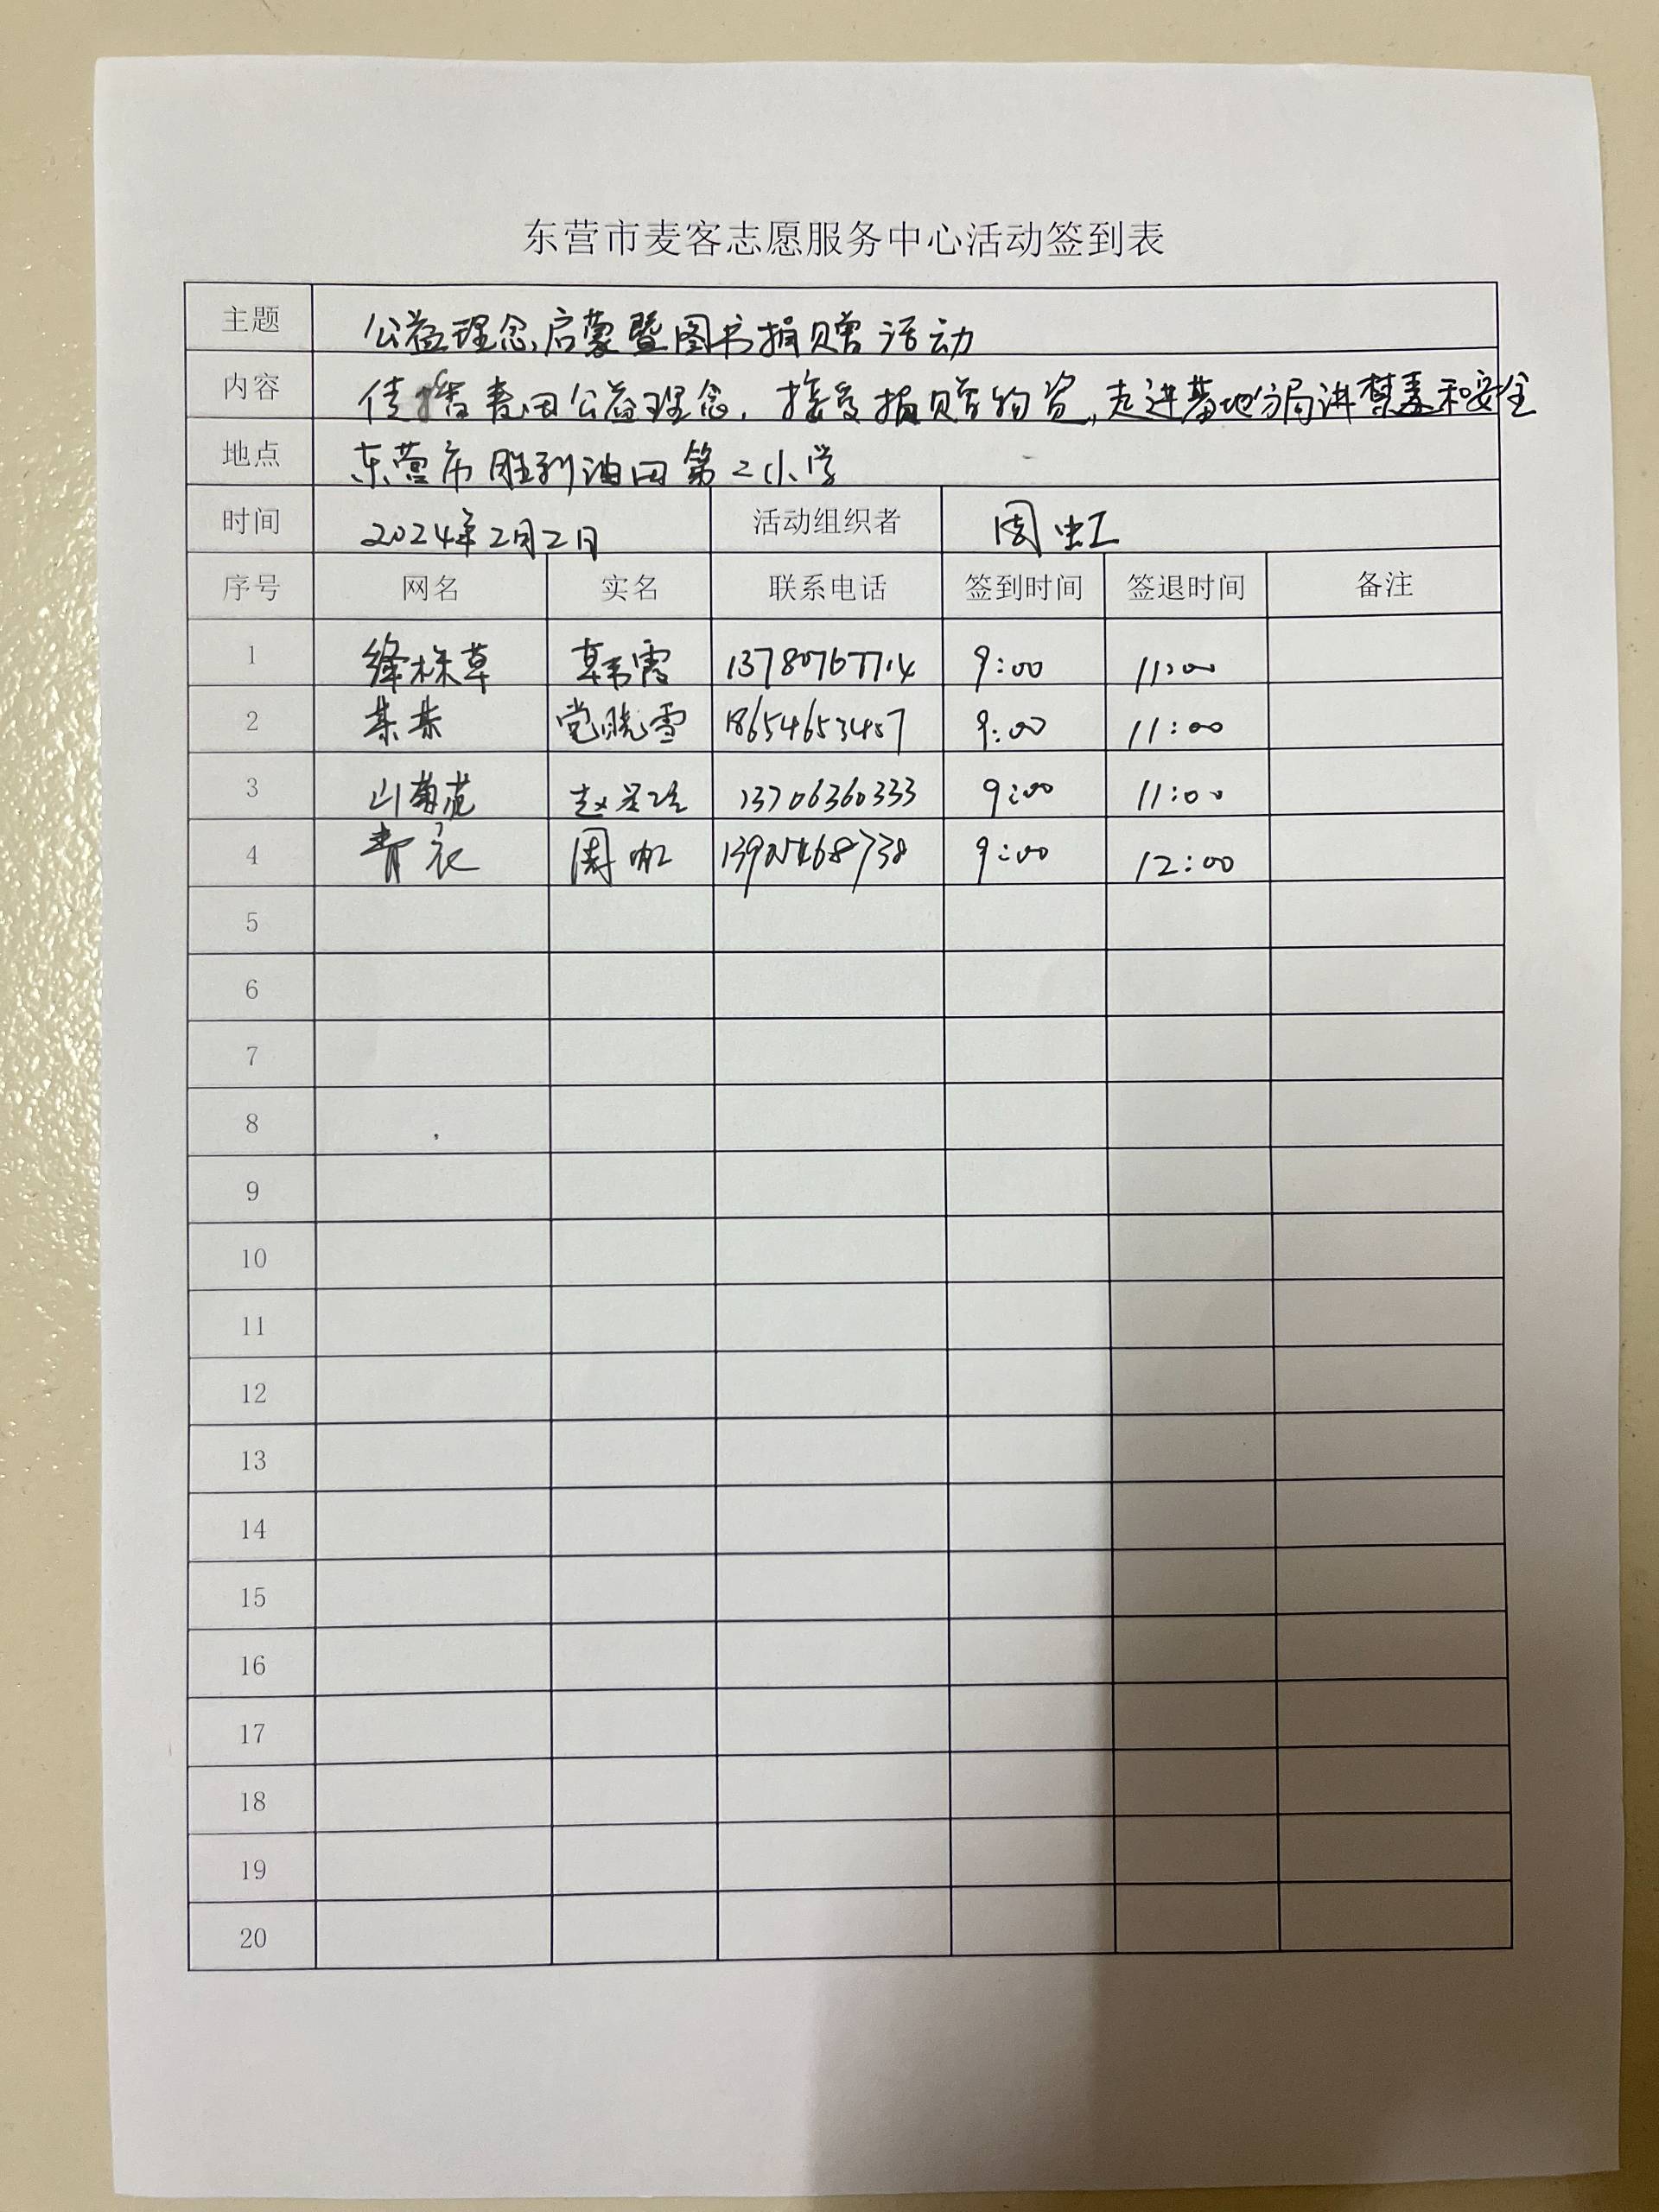 东营市麦客志愿服务中心活动签到表
主题 公益理念启蒙暨图书捐赠活动
内容 传播麦田公益理念,接受捐赠物资,走进基地分局讲禁毒和安全
地点 东营市胜利油田第二小学
时间 2024年2月2日 活动组织者 周虹
序号 网名 实名 联系电话 签到时间 签退时间 备注
1 绛株草 霞 9:00 11:00
2 党晓雪 9:00 11:00
3 山菊花 赵 13706360333 9:00 11:00
4 青衣 周虹 9:00 12:00
5
6
7
8
9
10
11
12
13
14
15
16
17
18
19
20